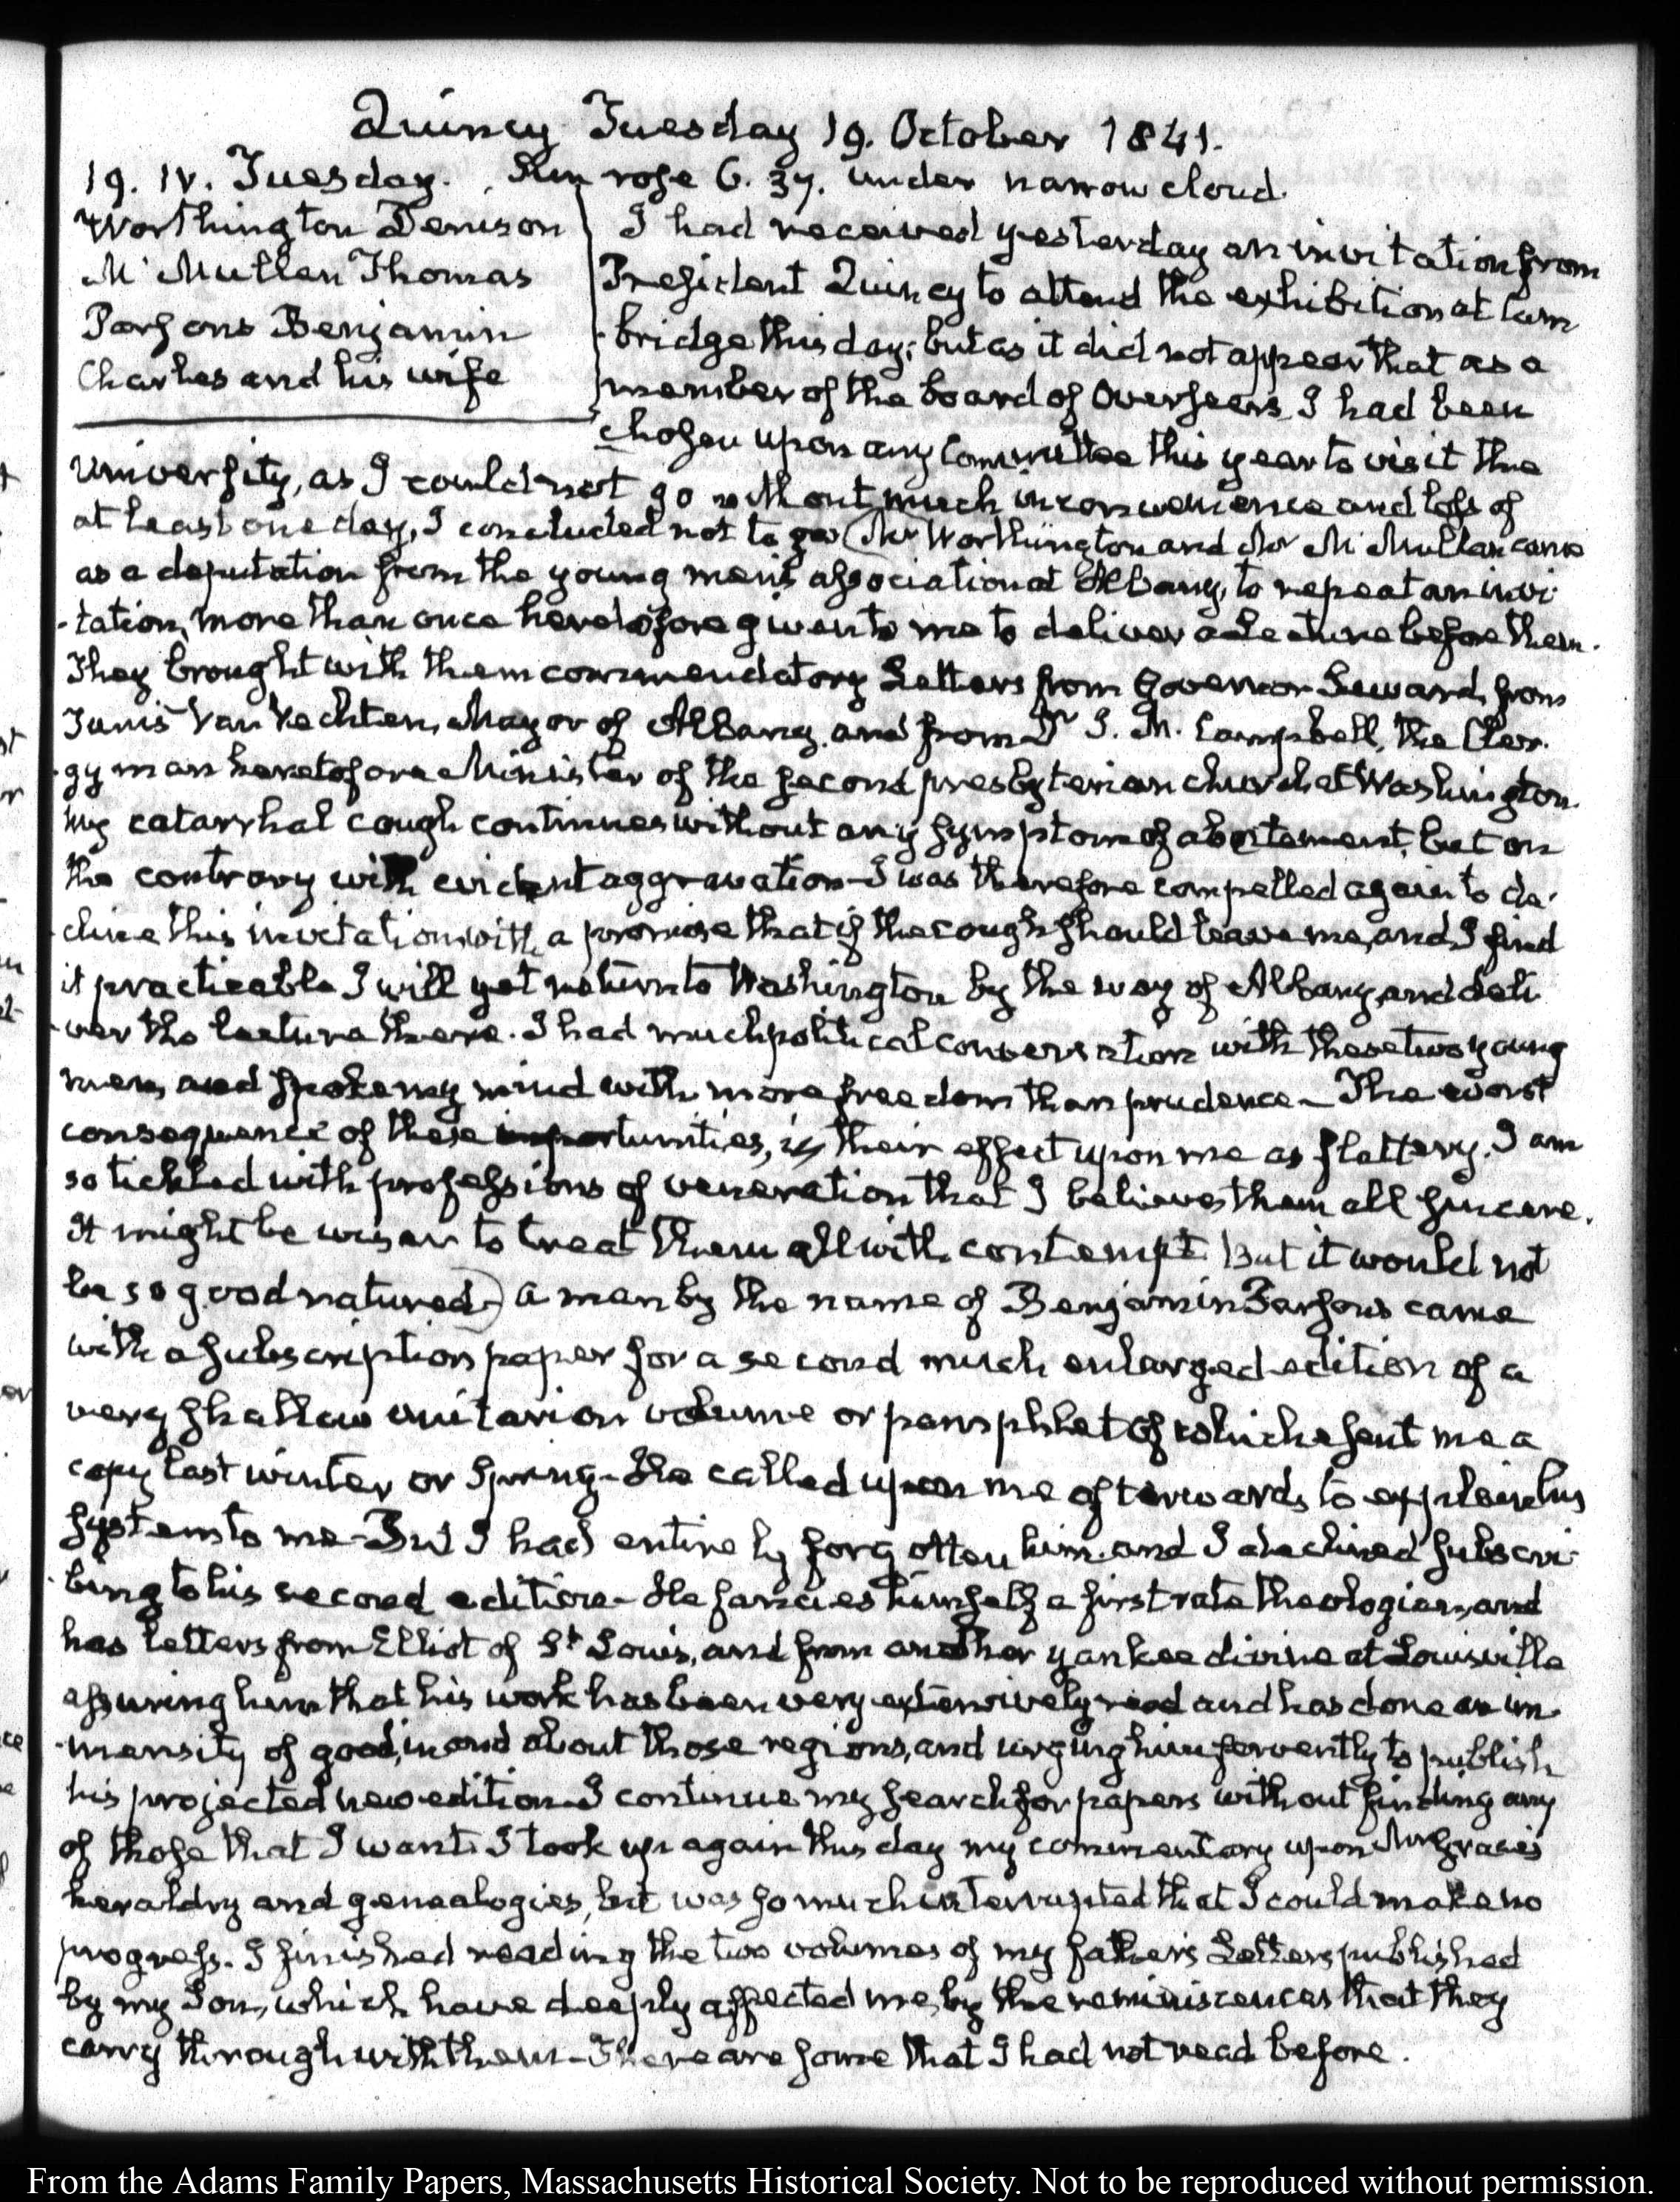 Quincy Tuesday 19. October 1841.
19. IV. Tuesday. Sun rose 6. 37. under narrow cloud.
Worthington Denison
McMullen Thomas
Parsons Benjamin
Charles and his wife
I had received yesterday an invitation from
President Quincy to attend the exhibition at Cam
-bridge this day; but as it did not appear that as a
member of the board of Overseers I had been
chosen upon any Committee this year to visit the
University, as I could not go without much inconvenience and loss of
at least one day, I concluded not to go (Mr Worthington and Mr McMullan came
as a deputation from the young men's association at Albany, to repeat an invi
-tation, more than once heretofore given to me to deliver a Lecture before them.
They brought with them commendatory Letters from Governor Seward, from
Tunis Van Vechten, Mayor of Albany, and from Dr J. N. Campbell, the Cler
-gyman heretofore Minister of the second presbyterian church at Washington.
My catarrhal cough continues without any symptom of abatement, but on
the contrary with evident aggravation—I was therefore compelled again to de
-cline this invitation with a promise that if the cough should leave me, and I find
it practicable I will yet return to Washington by the way of Albany, and deli
-ver the lecture there. I had much political conversation with these two young
men, and spoke my mind with more freedom than prudence—The worst
consequence of these importunities, is their effect upon me as flattery. I am
so tickled with professions of veneration that I believe them all sincere.
It might be wiser to treat them all with contempt. But it would not
be so good natured) A man by the name of Benjamin Parsons came
with a subscription paper for a second much enlarged edition of a
very shallow unitarian volume or pamphlet of which he sent me a
copy last winter or Spring—He called upon me afterwards to explain his
system to me—But I had entirely forgotten him and I declined subscri
-bing to his second edition—He fancies himself a first rate theologian, and
has letters from Elliot of St Louis, and from another yankee divine at Louisville
assuring him that his work has been very extensively read and has done an im
-mensity of good, in and about those regions, and urging him fervently to publish
his projected new edition—I continue my search for papers without finding any
of those that I want. I took up again this day my commentary upon
heraldry and genealogies, but was so much interrupted that I could make no
progress. I finished reading the two volumes of my father's Letters published
by my Son, which have deeply affected me, by the reminiscences that they
carry through with them—There are some that I had not read before.
From the Adams Family Papers, Massachusetts Historical Society. Not to be reproduced without permission.